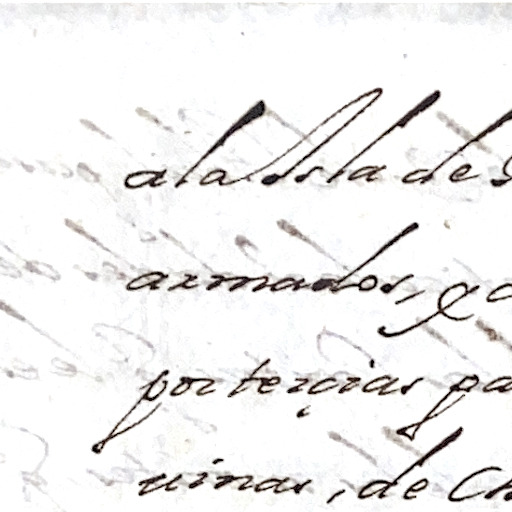 a la Isla de
armados, y
por terçias pa
uinas, de Ch